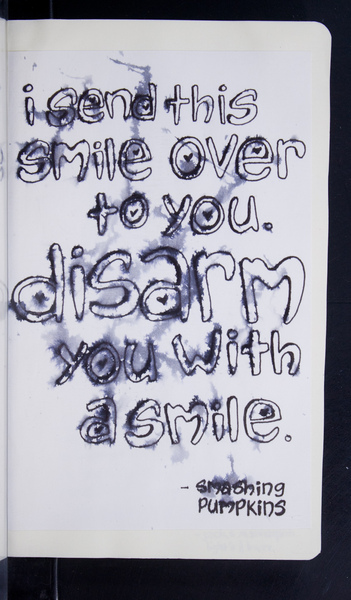 i send this
smile over
to you.
disarm
you with
a smile.
- smashing
pumpkins